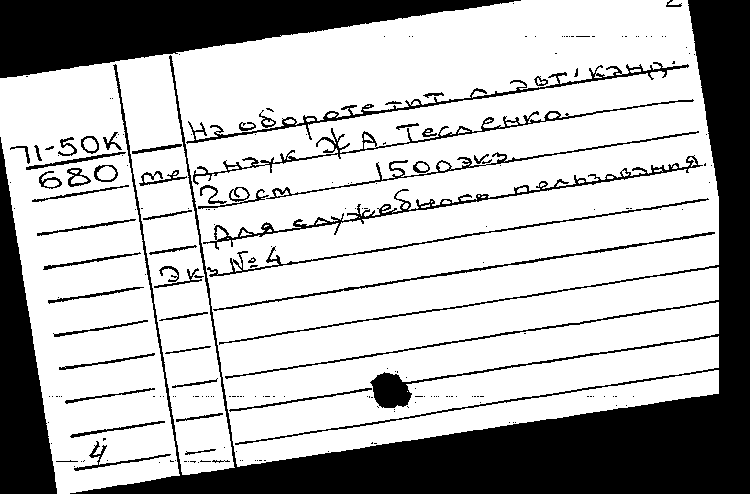 2
На обороте тит. л. авт.: канд.
71-50К
мед. наук Ж А. Тесленко.
680
20см 1500экз.
Для служебного пользования
Экз №4.
4